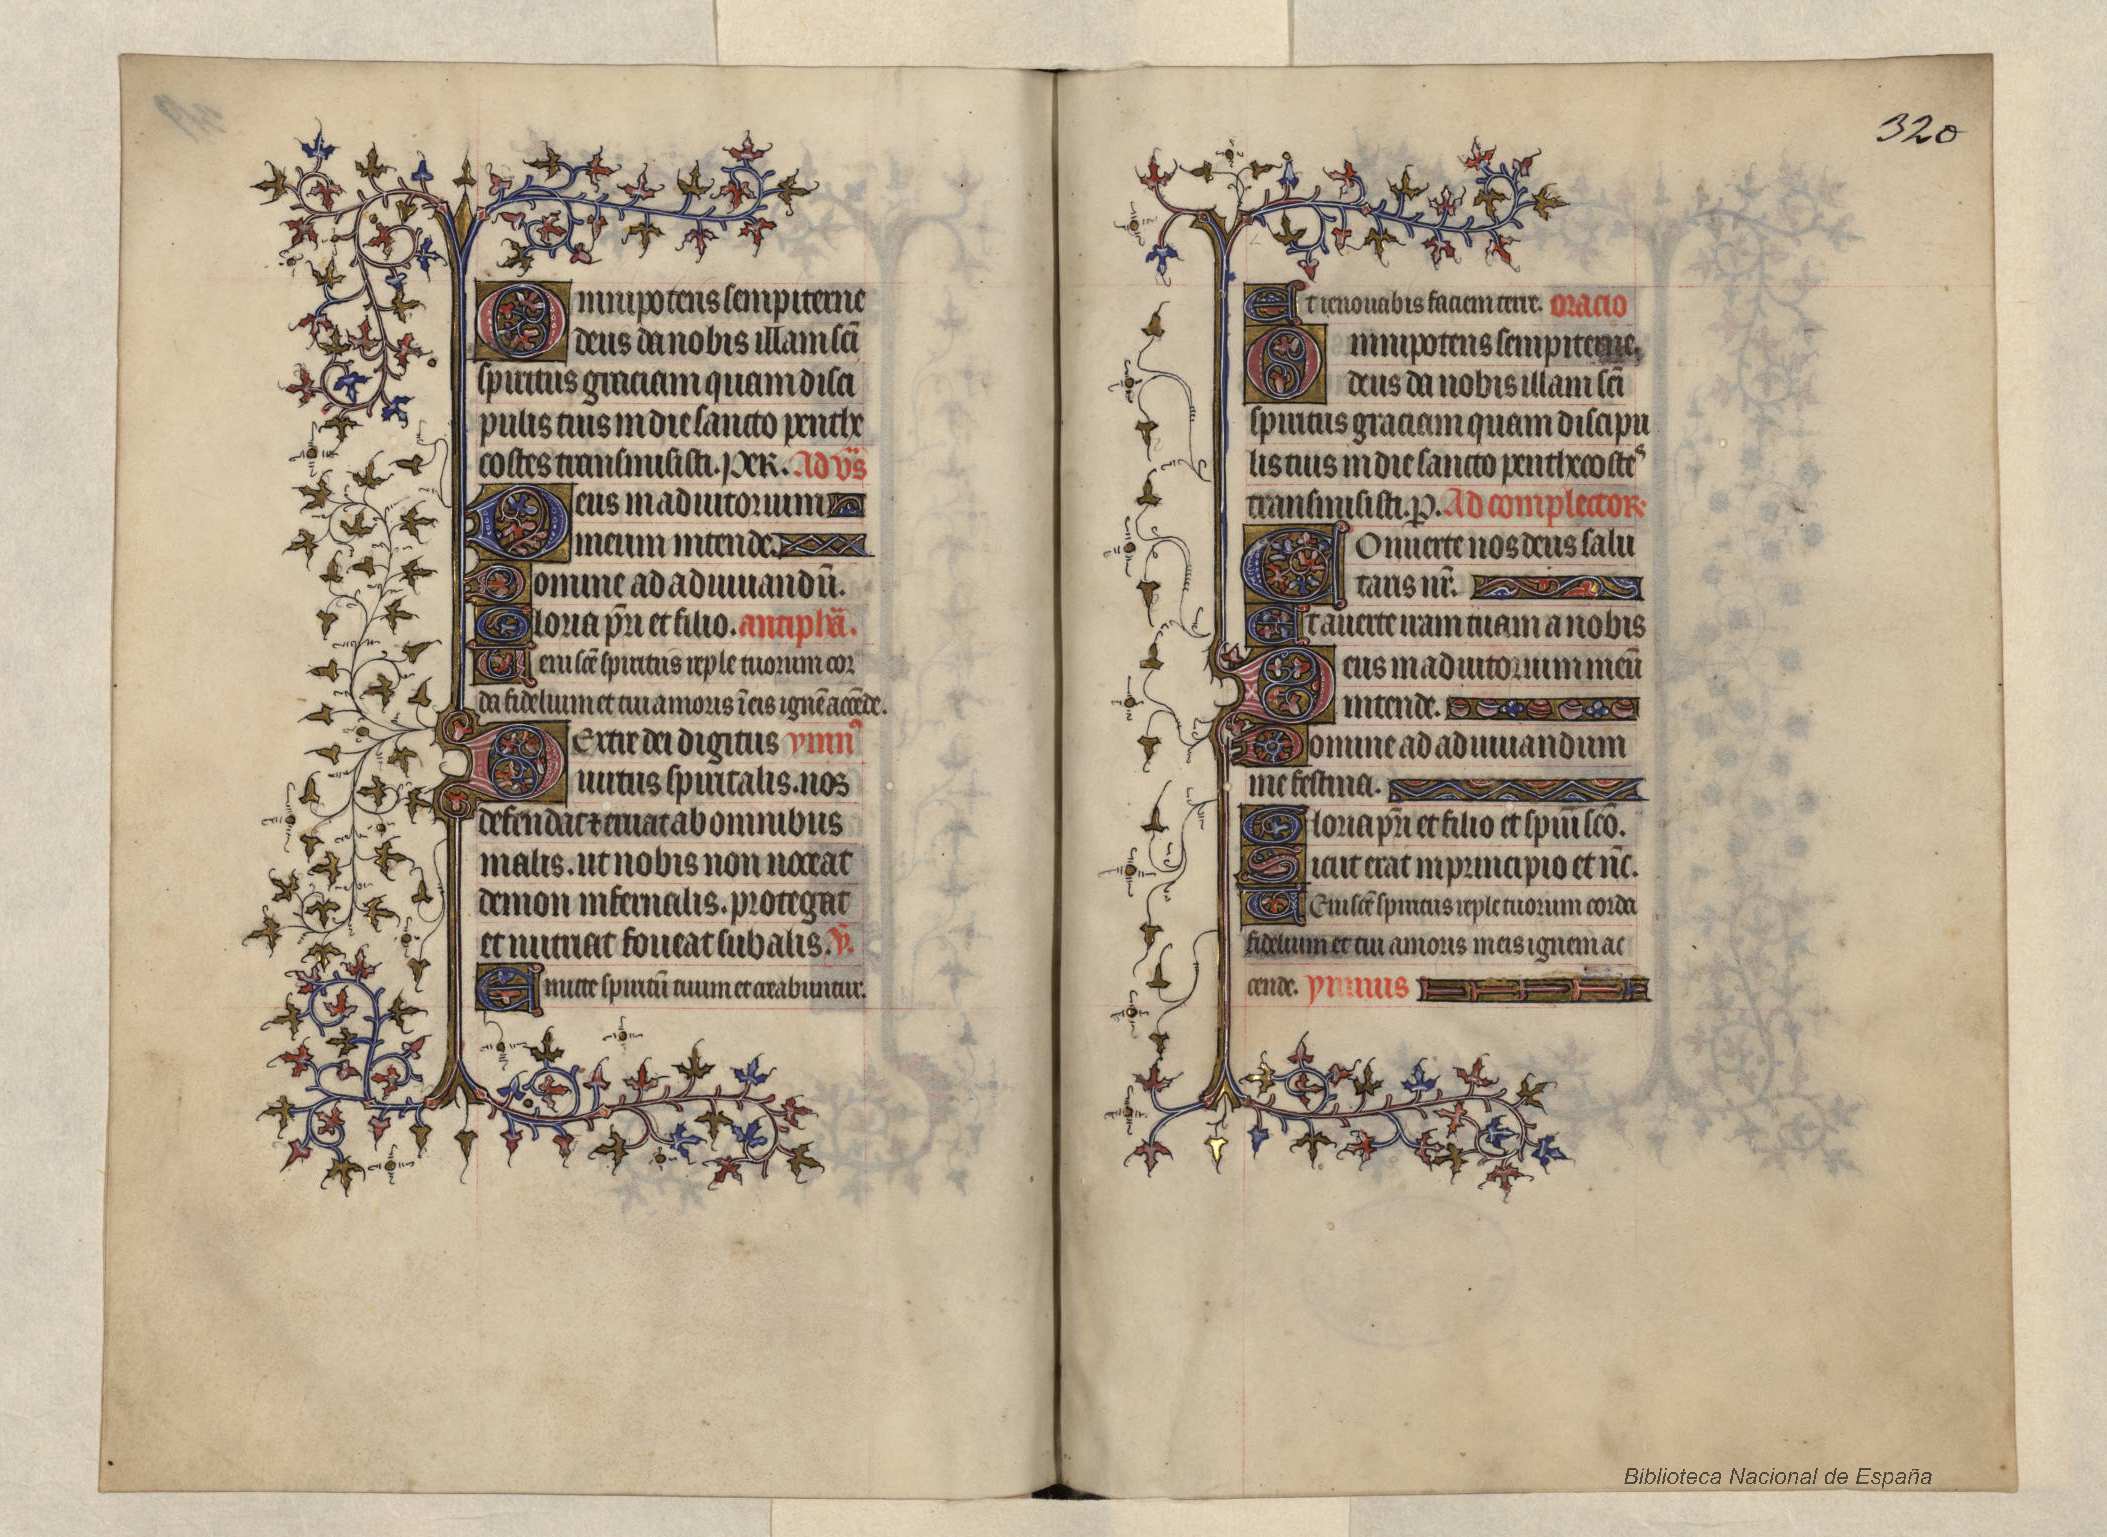 Omnipotens sempiterne
deus da nobis illam scī
spiritus graciam quam disci
pulis tuis in die sancto penthe
costes transmisisti. Per. Ad vs̄
Deus in adiutorium
meum intende.
Domine ad adiuuandū.
Gloria pr̄i et filio. antiphā.
Ueni scē spiritus reple tuorum cor
da fidelium et tui amoris ī eis ignē accēde.
Dextre dei digitus ymn᷒
uirtus spiritalis. nos
defendat & eruat ab omnibus
malis. ut nobis non noceat
demon infernalis. protegat
et nutriat foueat sub alis. v̄.
Emitte spiritū tuum et creabuntur.
320
Et renouabis faciem terre. oracio
Omnipotens sempiterne,
deus da nobis illam scī
spiritus graciam quam discipu
lis tuis in die sancto penthecostes
transmisisti. p. Ad complector.
Conuerte nos deus salu
taris nr̄.
Et auerte iram tuam a nobis
Deus in adiutorium meū
intende.
Domine ad adiuuandum
me festina.
Gloria pr̄i et filio et spiū scō.
Sicut erat in principio et nc̄.
Ueni scē spiritus reple tuorum corda
fidelium et tui amoris in eis ignem ac
cende. ymnus
Biblioteca Nacional de España